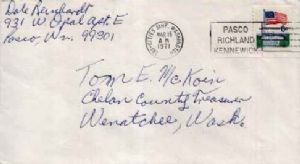 Dale Reinhardt
931 W Opal Apt. E
Pasco, Wn. 99301
MAR 15
AM
1971
PASCO
RICHLAND
KENNEWICK
6c
Tom E. McKoin
Chelan County Treasurer
Wenatchee, Wash.